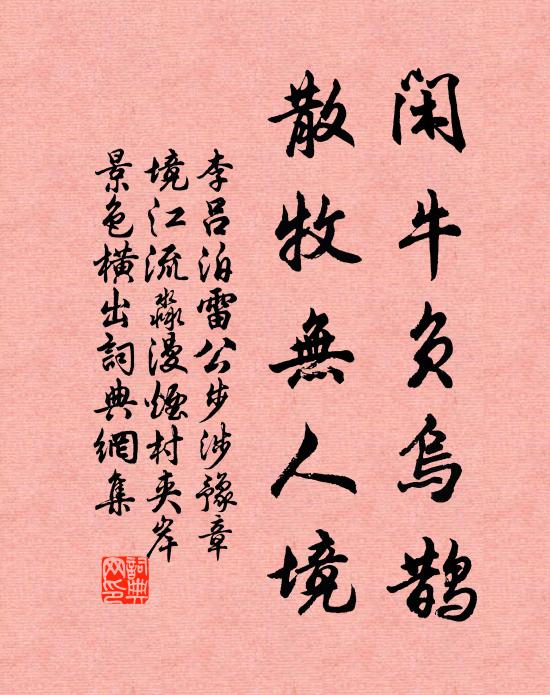 闲牛负乌鹊
散牧無人境
李吕泊雷公步涉豫章
境江流淼漫煙村夹岸
景色横出詞典網集
詞典网印